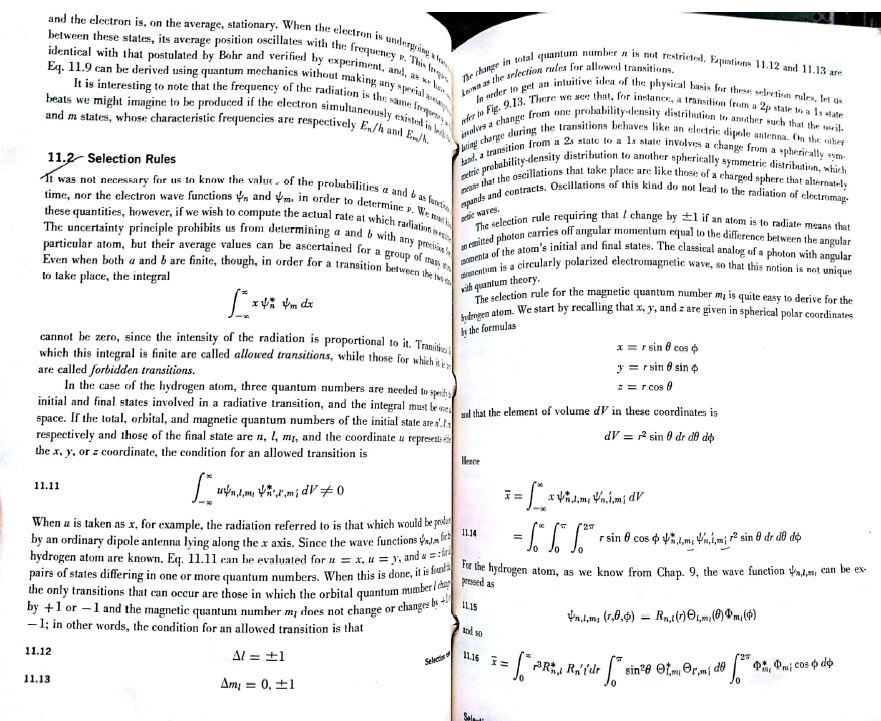 and the electron is, on the average, stationary. When the electron is undergoing a
between these states, its average position oscillates with the frequency ν. This
identical with that postulated by Bohr and verified by experiment, and, as we
Eq. 11.9 can be derived using quantum mechanics without making any special
It is interesting to note that the frequency of the radiation is the same
beats we might imagine to be produced if the electron simultaneously existed in
and m states, whose characteristic frequencies are respectively Eₙ/h and Eₘ/h.
11.2 Selection Rules
It was not necessary for us to know the values of the probabilities a and b as
time, nor the electron wave functions ψₙ and ψₘ, in order to determine ν. We must
these quantities, however, if we wish to compute the actual rate at which radiation is
The uncertainty principle prohibits us from determining a and b with any precision for
particular atom, but their average values can be ascertained for a group of many
Even when both a and b are finite, though, in order for a transition between the two
to take place, the integral
∫_{-∞}^{∞} x ψₙ* ψₘ dx
cannot be zero, since the intensity of the radiation is proportional to it. Transitions
which this integral is finite are called allowed transitions, while those for which it is
are called forbidden transitions.
In the case of the hydrogen atom, three quantum numbers are needed to specify
initial and final states involved in a radiative transition, and the integral must be over
space. If the total, orbital, and magnetic quantum numbers of the initial state are n', l',
respectively and those of the final state are n, l, mₗ, and the coordinate u represents
the x, y, or z coordinate, the condition for an allowed transition is
11.11 ∫_{-∞}^{∞} uψ_{n,l,mₗ} ψ*_{n',l',mₗ'} dV ≠ 0
When u is taken as x, for example, the radiation referred to is that which would be
by an ordinary dipole antenna lying along the x axis. Since the wave functions ψ_{n,l,mₗ}
hydrogen atom are known, Eq. 11.11 can be evaluated for u = x, u = y, and u = z
pairs of states differing in one or more quantum numbers. When this is done, it is found
the only transitions that can occur are those in which the orbital quantum number l
by +1 or −1 and the magnetic quantum number mₗ does not change or changes by
−1; in other words, the condition for an allowed transition is that
11.12 Δl = ±1
11.13 Δmₗ = 0, ±1
Selection
The change in total quantum number n is not restricted. Equations 11.12 and 11.13 are
known as the selection rules for allowed transitions.
In order to get an intuitive idea of the physical basis for these selection rules, let us
refer to Fig. 9.13. There we see that, for instance, a transition from a 2p state to a 1s state
involves a change from one probability-density distribution to another such that the oscil-
lating charge during the transitions behaves like an electric dipole antenna. On the other
hand, a transition from a 2s state to a 1s state involves a change from a spherically sym-
metric probability-density distribution to another spherically symmetric distribution, which
means that the oscillations that take place are like those of a charged sphere that alternately
expands and contracts. Oscillations of this kind do not lead to the radiation of electromag-
netic waves.
The selection rule requiring that l change by ±1 if an atom is to radiate means that
an emitted photon carries off angular momentum equal to the difference between the angular
momenta of the atom's initial and final states. The classical analog of a photon with angular
momentum is a circularly polarized electromagnetic wave, so that this notion is not unique
with quantum theory.
The selection rule for the magnetic quantum number mₗ is quite easy to derive for the
hydrogen atom. We start by recalling that x, y, and z are given in spherical polar coordinates
by the formulas
x = r sin θ cos ϕ
y = r sin θ sin ϕ
z = r cos θ
and that the element of volume dV in these coordinates is
dV = r² sin θ dr dθ dϕ
Hence
x̄ = ∫_{-∞}^{∞} x ψ*_{n,l,mₗ} ψ_{n',l',mₗ'} dV
11.14 = ∫₀^∞ ∫₀^π ∫₀^{2π} r sin θ cos ϕ ψ*_{n,l,mₗ} ψ_{n',l',mₗ'} r² sin θ dr dθ dϕ
For the hydrogen atom, as we know from Chap. 9, the wave function ψ_{n,l,mₗ} can be ex-
pressed as
11.15 ψ_{n,l,mₗ} (r,θ,ϕ) = R_{n,l}(r)Θ_{l,mₗ}(θ)Φ_{mₗ}(ϕ)
and so
11.16 x̄ = ∫₀^∞ r³R*_{n,l} R_{n'l'} dr ∫₀^π sin²θ Θ*_{l,mₗ} Θ_{l',mₗ'} dθ ∫₀^{2π} Φ*_{mₗ} Φ_{mₗ'} cos ϕ dϕ